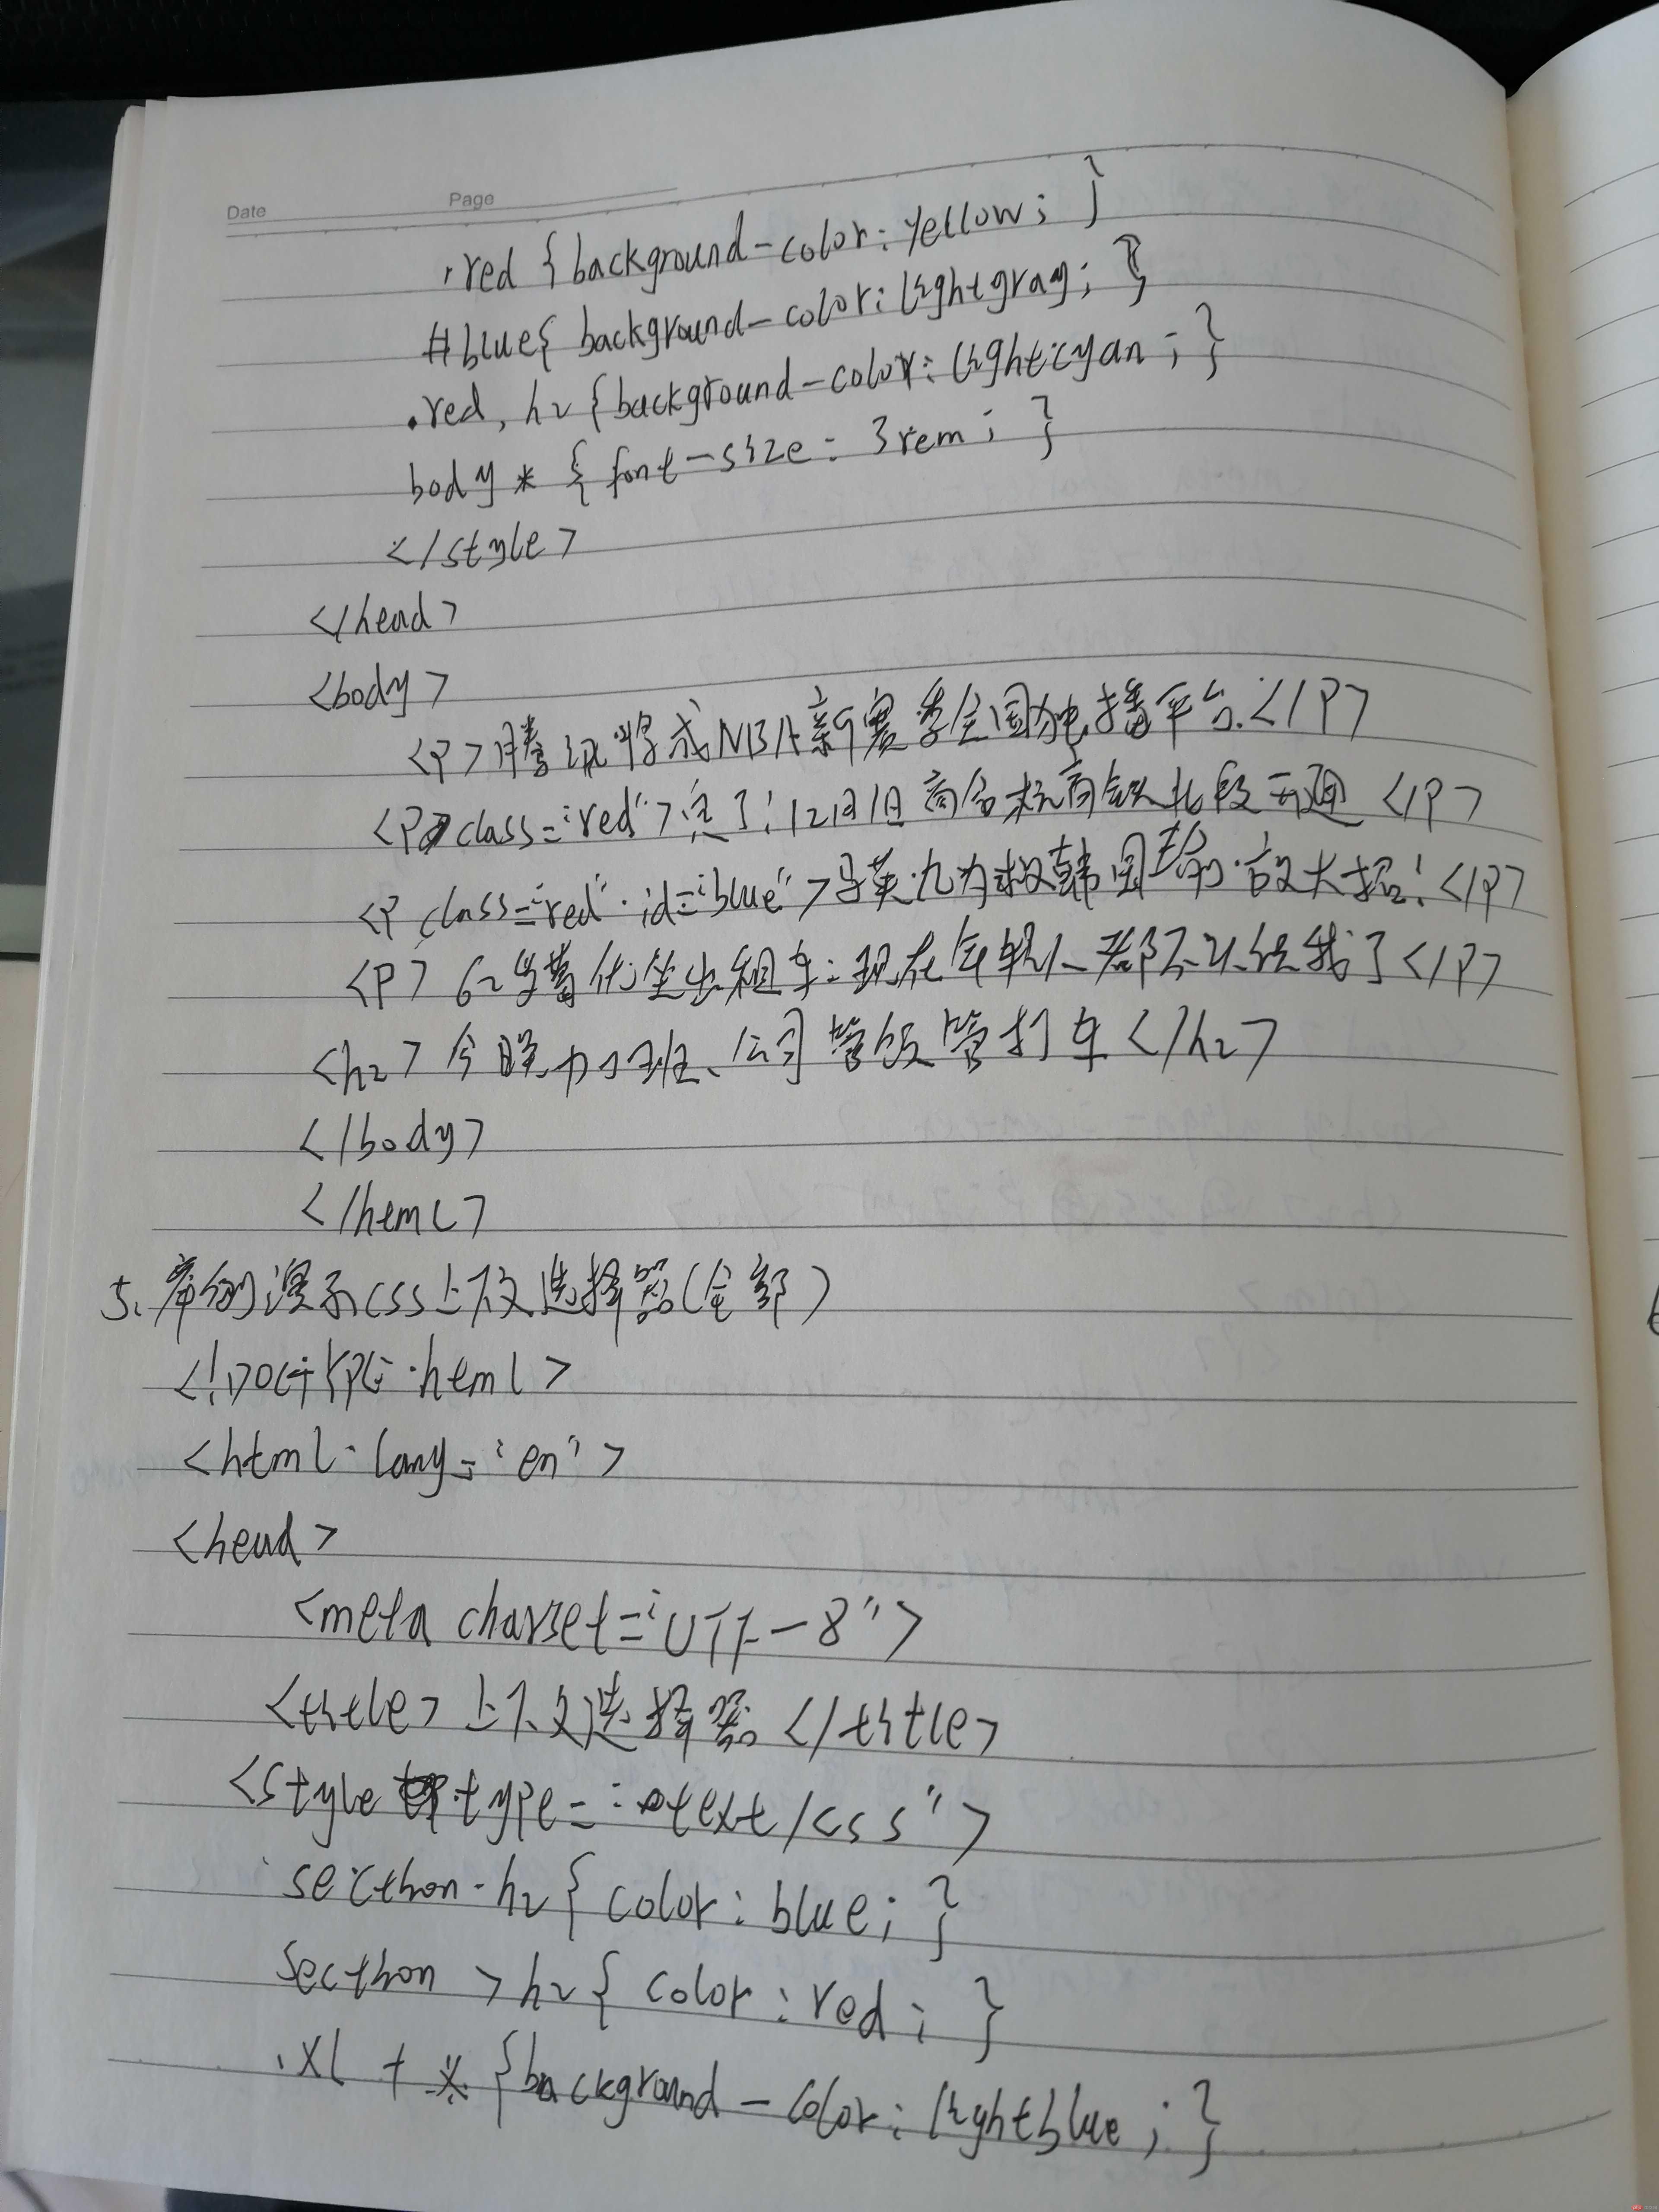 Date Page
.red {background-color: yellow; }
#blue{ background-color: lightgray; }
.red, h2 {background-color: lightcyan; }
body * { font-size: 3rem; }
</style>
</head>
<body>
<P>腾讯将成NBA新赛季全国独播平台.</P>
<P class="red">定了!12月1日商合杭高铁北段开通</P>
<P class="red" id="blue">马英九为救韩国瑜放大招!</P>
<P>62岁葛优坐出租车:现在年轻人都不认识我了</P>
<h2>今晚加班、公司管饭管打车</h2>
</body>
</html>
5、举例演示css上下文选择器(全部)
<!DOCTYPE html>
<html lang="en">
<head>
<meta charset="UTF-8">
<title>上下文选择器</title>
<style type="text/css">
section h2 { color: blue; }
section > h2 { color: red; }
.xl + * {background-color: lightblue; }